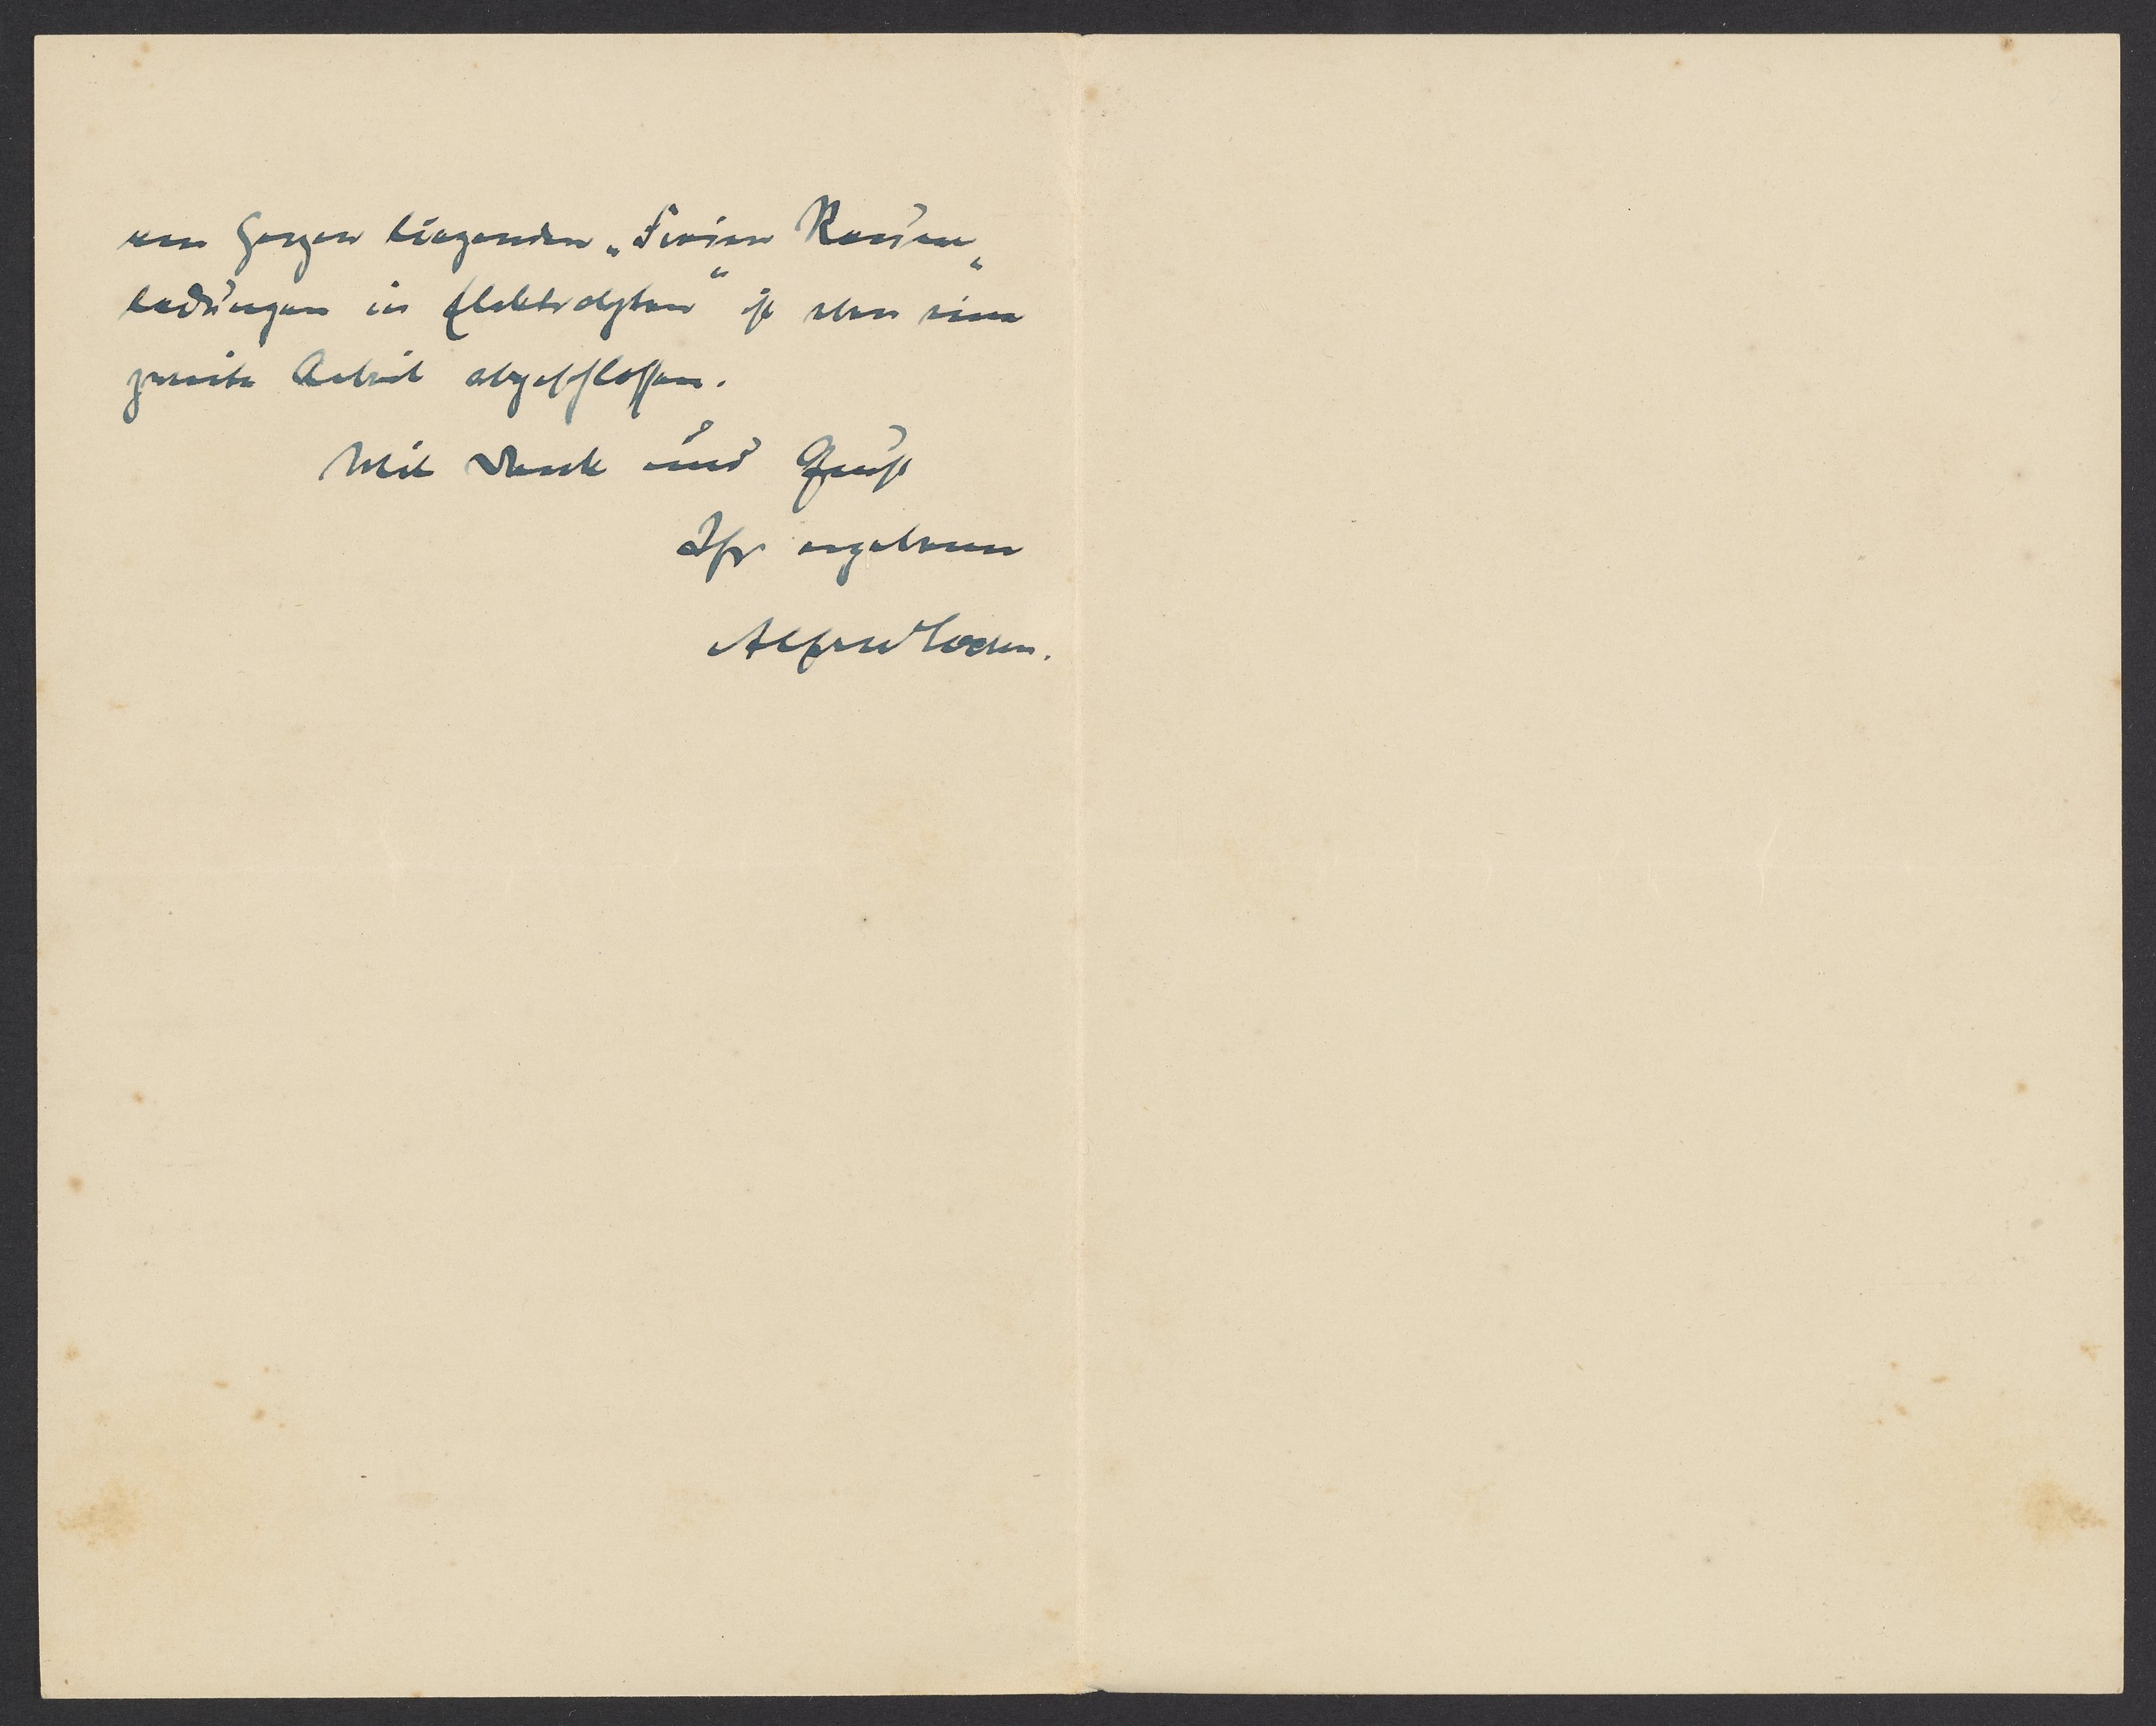 am Herzen liegenden „Freien Raum„
ladungen in Elektrolyten“ ist eben eine
zweite Arbeit abgeschlossen.
Mit Dank und Gruß
Ihr ergebener
Alfred Coehn.